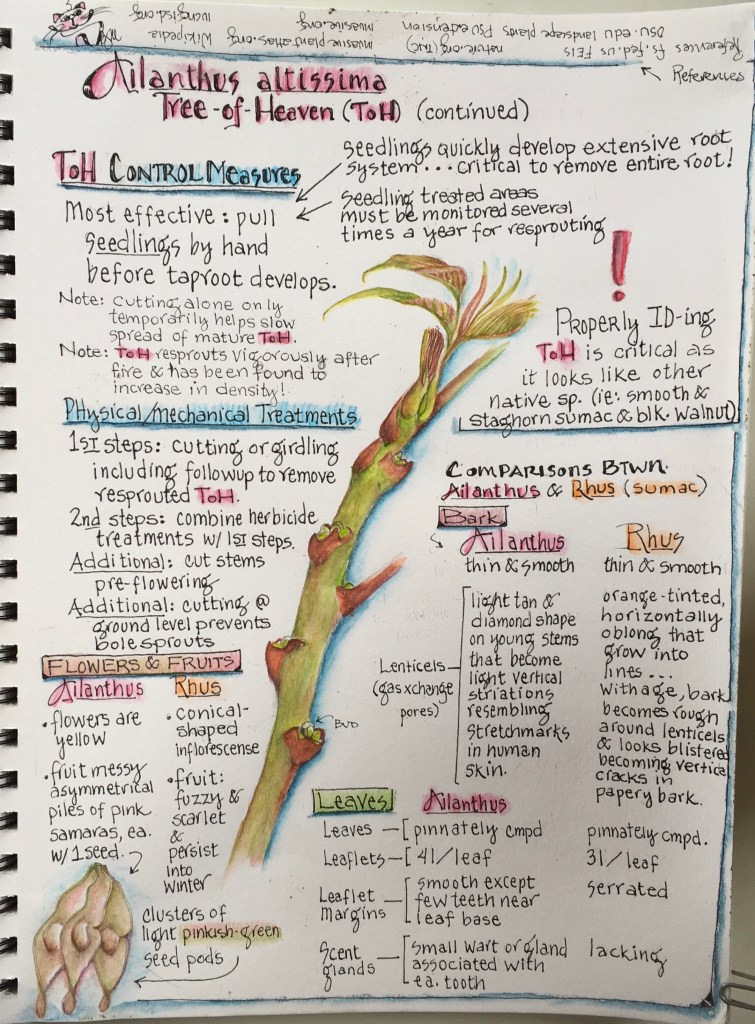 References fs.fed.us FEIS
nature.org (TNC)
invasiveplantatlas.org Wikipedia
OSU.edu landscape plants PSU extension
invasive.org
References
Ailanthus altissima
Tree-of-Heaven (ToH) (continued)
ToH Control Measures
seedlings quickly develop extensive root
system... critical to remove entire root!
seedling treated areas
must be monitored several
times a year for resprouting
Most effective: pull
seedlings by hand
before taproot develops.
Note: cutting alone only
temporarily helps slow
spread of mature ToH.
Note: ToH resprouts vigorously after
fire & has been found to
increase in density!
!
Properly ID-ing
ToH is critical as
it looks like other
native sp. (ie: smooth &
staghorn sumac & blk. walnut)
Physical/mechanical Treatments
1st steps: cutting or girdling
including followup to remove
resprouted ToH.
2nd steps: combine herbicide
treatments w/ 1st steps.
Additional: cut stems
pre-flowering
Additional: cutting @
ground level prevents
bole sprouts
Flowers & Fruits
Ailanthus
• flowers are
yellow
• fruit messy
asymmetrical
piles of pink
samaras, ea.
w/ 1 seed.
Rhus
• conical-
shaped
inflorescense
• fruit:
fuzzy &
scarlet
&
persist
into
winter
clusters of
light pinkish-green
seed pods
BUD
Comparisons BTWN.
Ailanthus & Rhus (sumac)
Bark
Ailanthus
thin & smooth
Lenticels
(gas xchange
pores)
light tan &
diamond shape
on young stems
that become
light vertical
striations
resembling
stretchmarks
in human
skin.
Rhus
thin & smooth
orange-tinted,
horizontally
oblong that
grow into
lines...
with age, bark
becomes rough
around lenticels
& looks blistered
becoming vertical
cracks in
papery bark.
Leaves Ailanthus
Leaves — [pinnately cmpd pinnately cmpd.
Leaflets — [41/leaf 31/leaf
Leaflet
Margins
smooth except
few teeth near
leaf base
serrated
Scent
glands
small wart or gland
associated with
ea. tooth
lacking